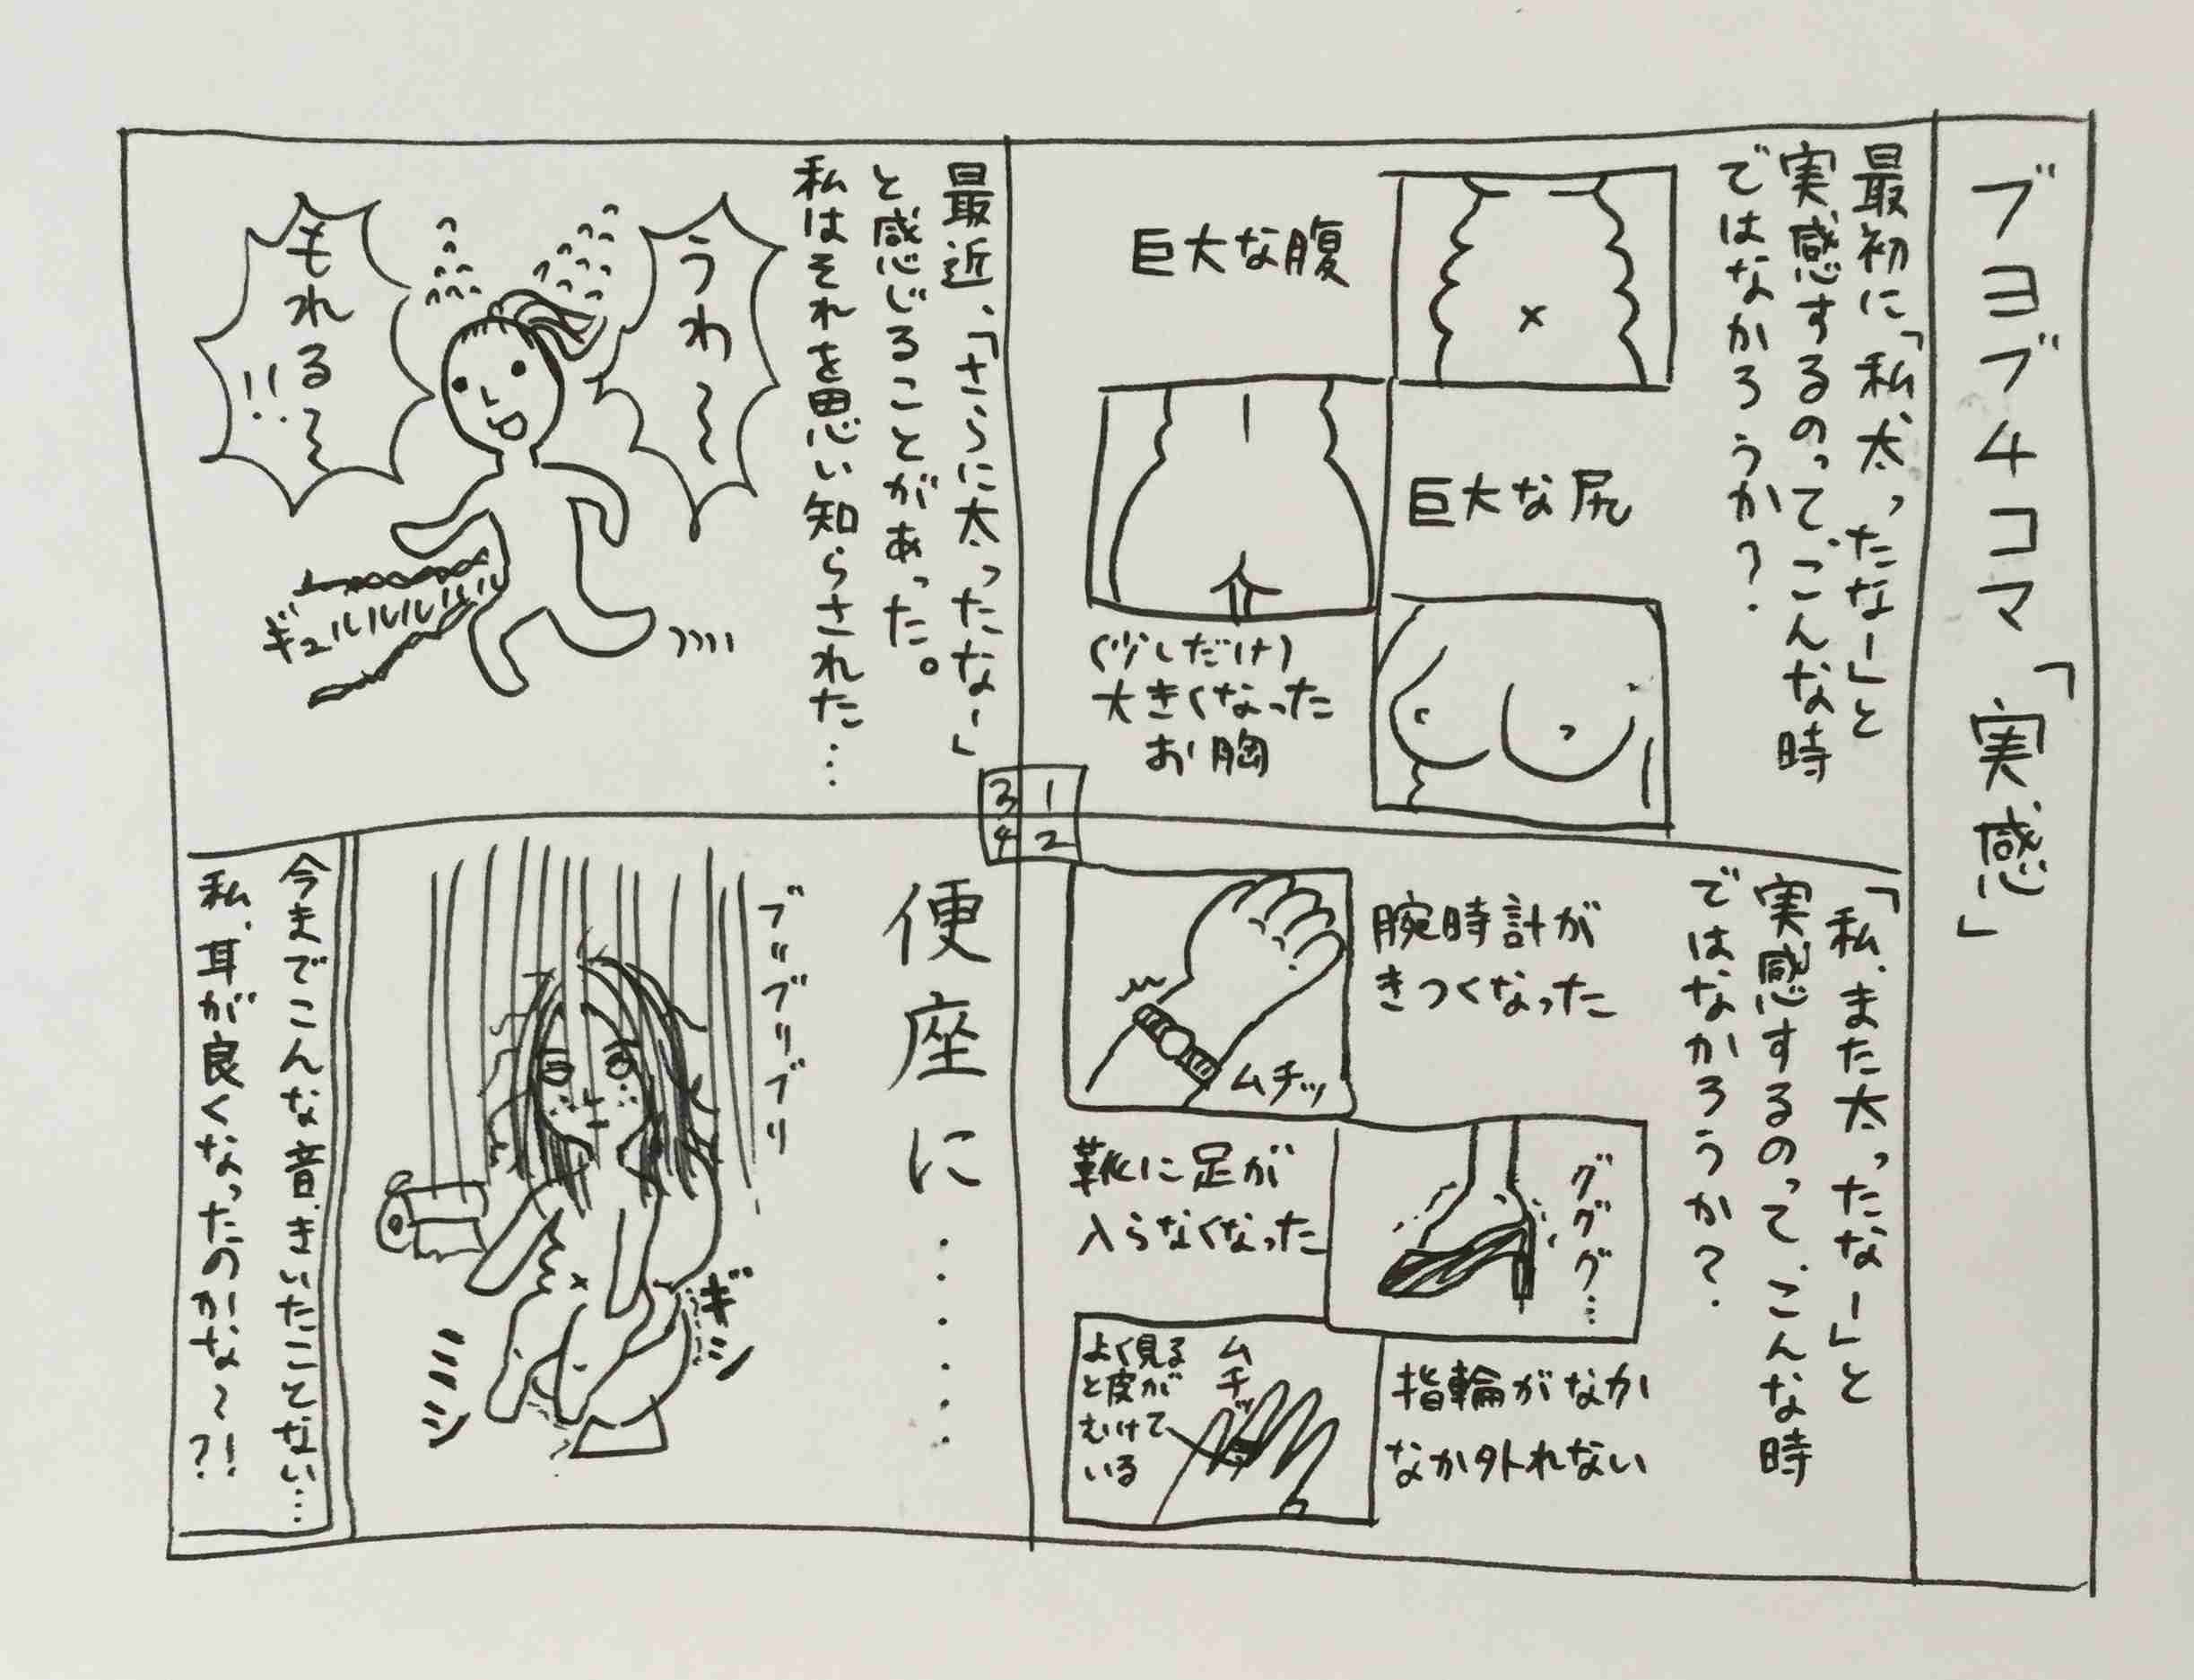 ブヨブヨ4コマ「実感」
最初に「私、太ったなー」と
実感するのって、こんな時
ではなかろうか？
巨大な腹
巨大な尻
（少しだけ）
大きくなった
お胸
1
2
3
4
「私、また太ったなー」と
実感するのって、こんな時
ではなかろうか？
腕時計が
きつくなった
ムチッ
靴に足が
入らなくなった
グググ…
指輪がなか
なか外れない
ムチッ
よく見る
と皮が
むけて
いる
最近、「さらに太ったなー」
と感じることがあった。
私はそれを思い知らされた…
うわ〜
もれる〜!!
ギュルルルルル
便座に……
ブリブリブリ
ギシ
ミミシ
今までこんな音、きいたことない…
私、耳が良くなったのかな〜?!